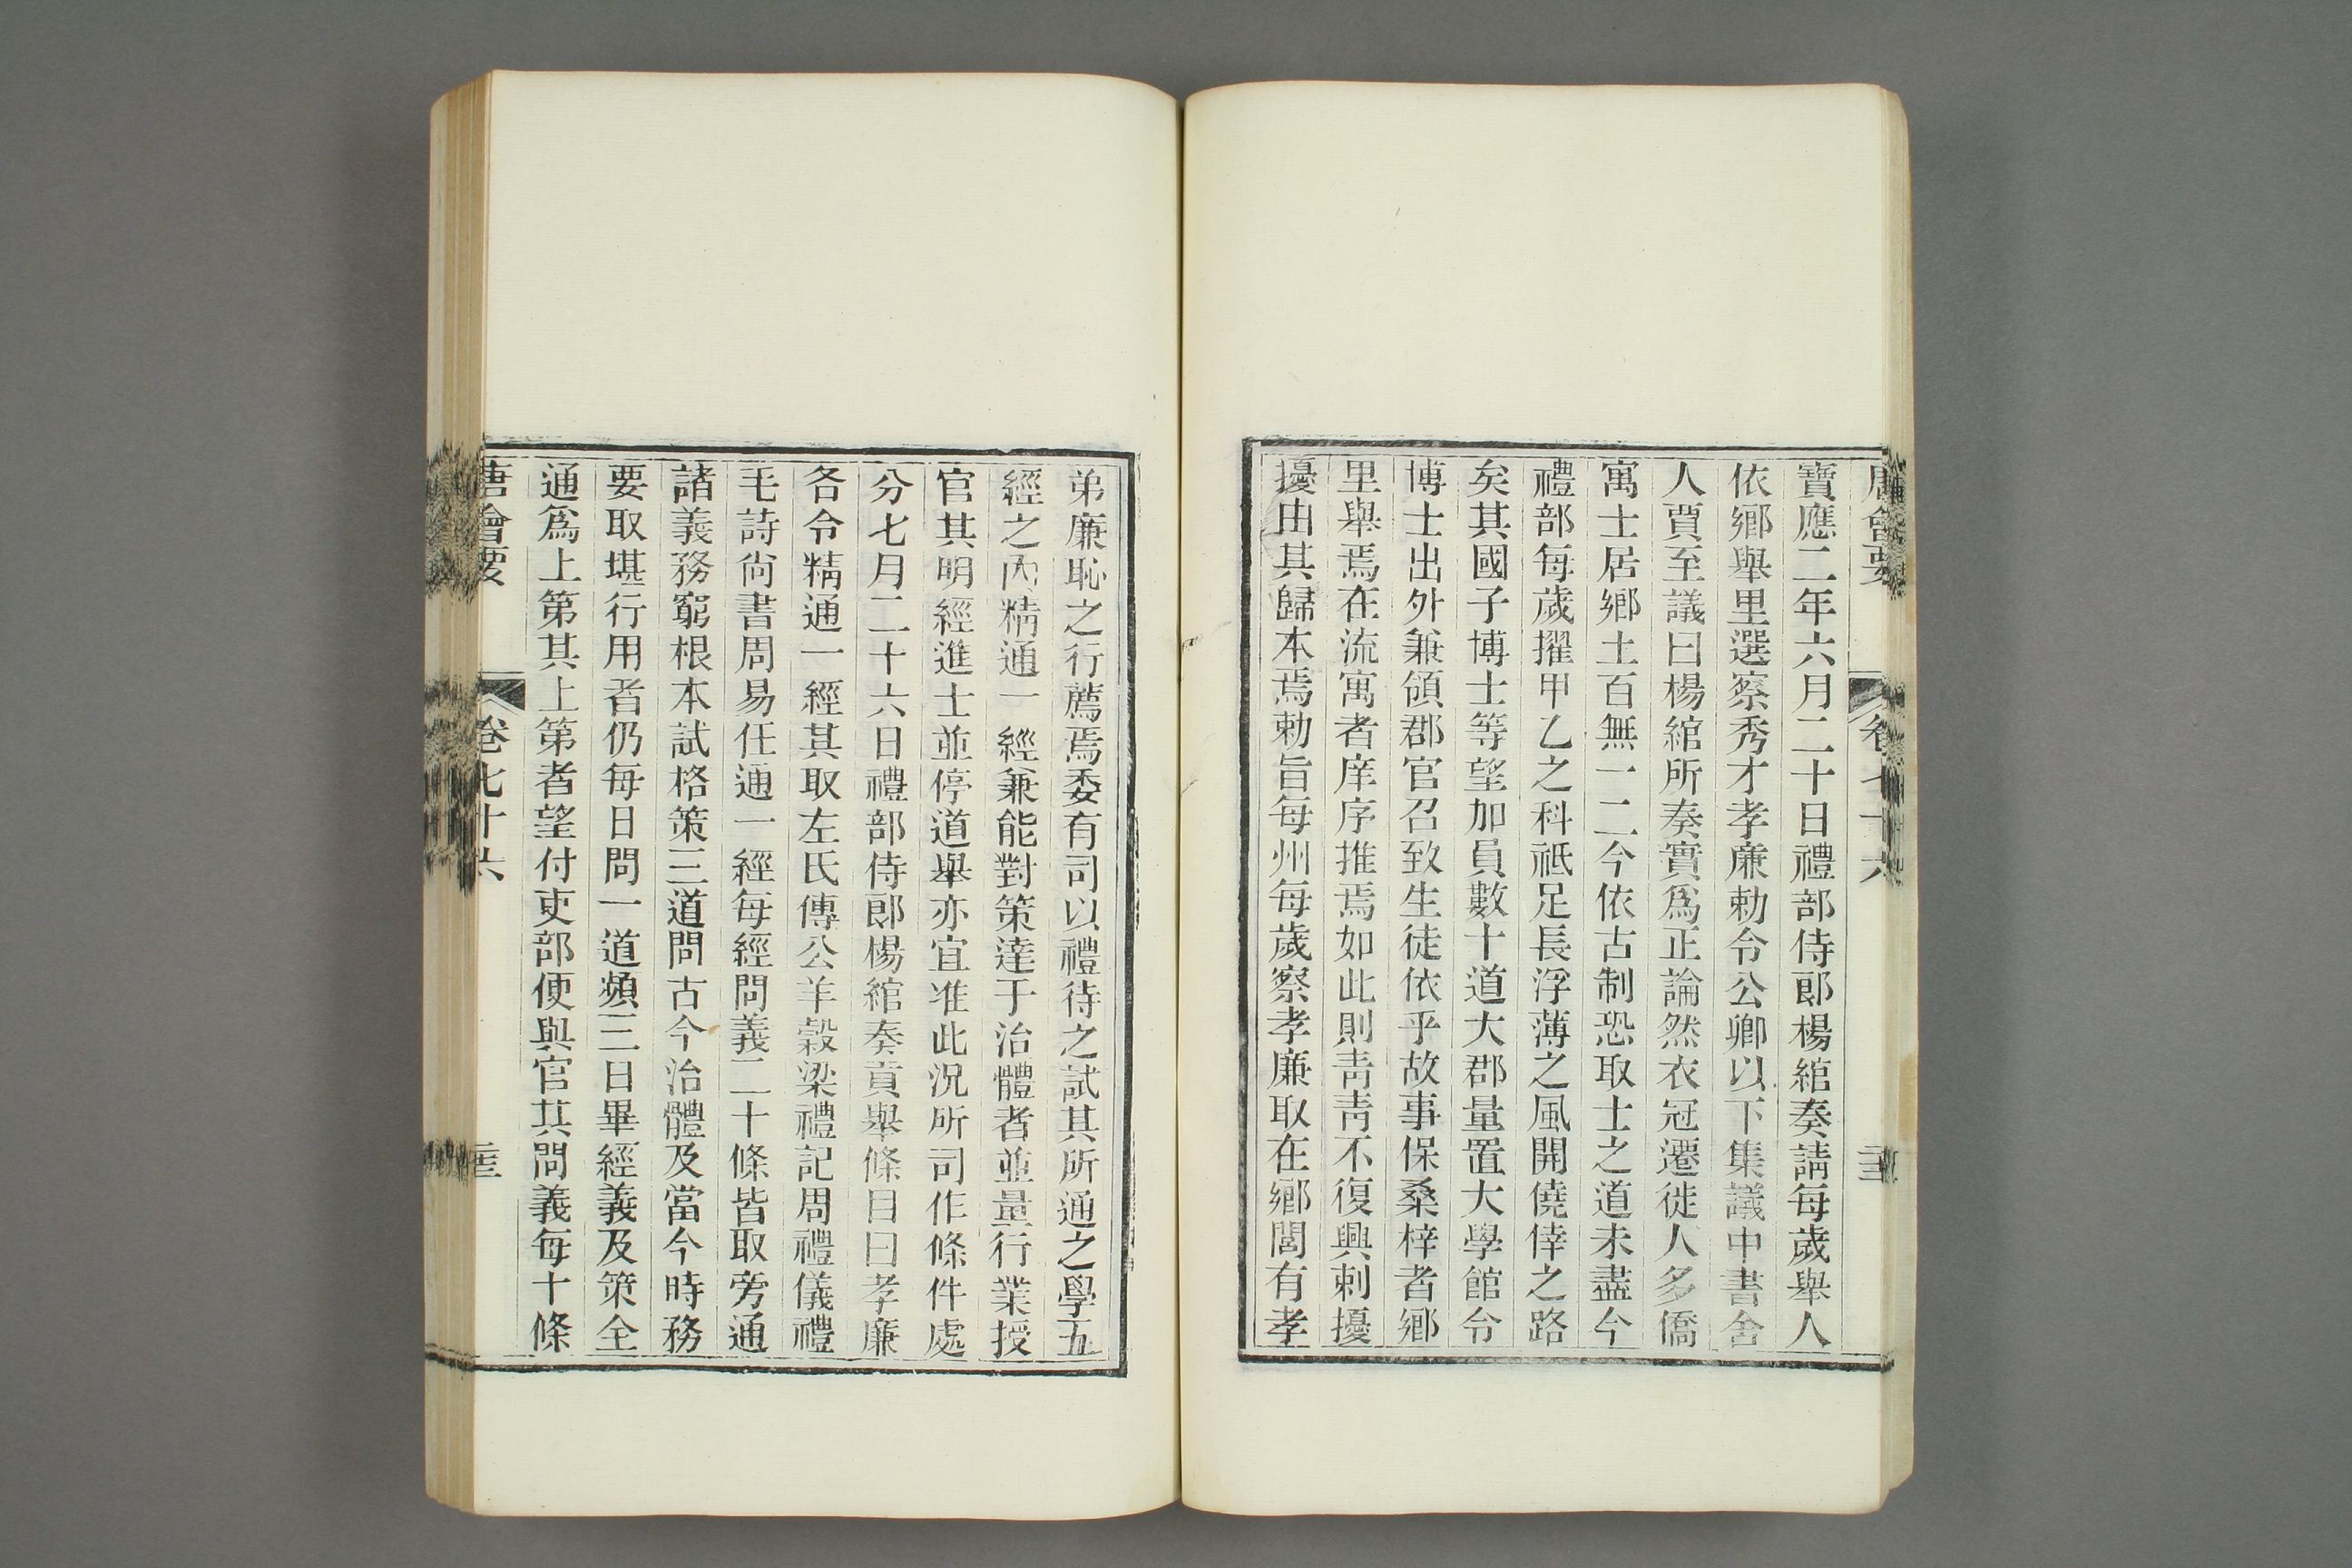 唐會要 卷七十六
寶應二年六月二十日禮部侍郎楊綰奏請每歲舉人
依鄉舉里選察秀才孝廉勅令公卿以下集議中書舍
人賈至議曰楊綰所奏實爲正論然衣冠遷徙人多僑
寓士居鄉土百無一二今依古制恐取士之道未盡今
禮部每歲擢甲乙之科祗足長浮薄之風開僥倖之路
矣其國子博士等望加員數十道大郡量置大學館令
博士出外兼領郡官召致生徒依乎故事保桑梓者鄉
里舉焉在流寓者庠序推焉如此則青青不復興刺擾
擾由其歸本焉勅旨每州每歲察孝廉取在鄉閭有孝
弟廉恥之行薦焉委有司以禮待之試其所通之學五
經之內精通一經兼能對策達于治體者並量行業授
官其明經進士並停道舉亦宜准此況所司作條件處
分七月二十六日禮部侍郎楊綰奏貢舉條目曰孝廉
各令精通一經其取左氏傳公羊穀梁禮記周禮儀禮
毛詩尚書周易任通一經每經問義二十條皆取旁通
諸義務窮根本試格策三道問古今治體及當今時務
要取堪行用者仍每日問一道頻三日畢經義及策全
通爲上第其上第者望付吏部便與官其問義每十條
唐會要 卷七十六